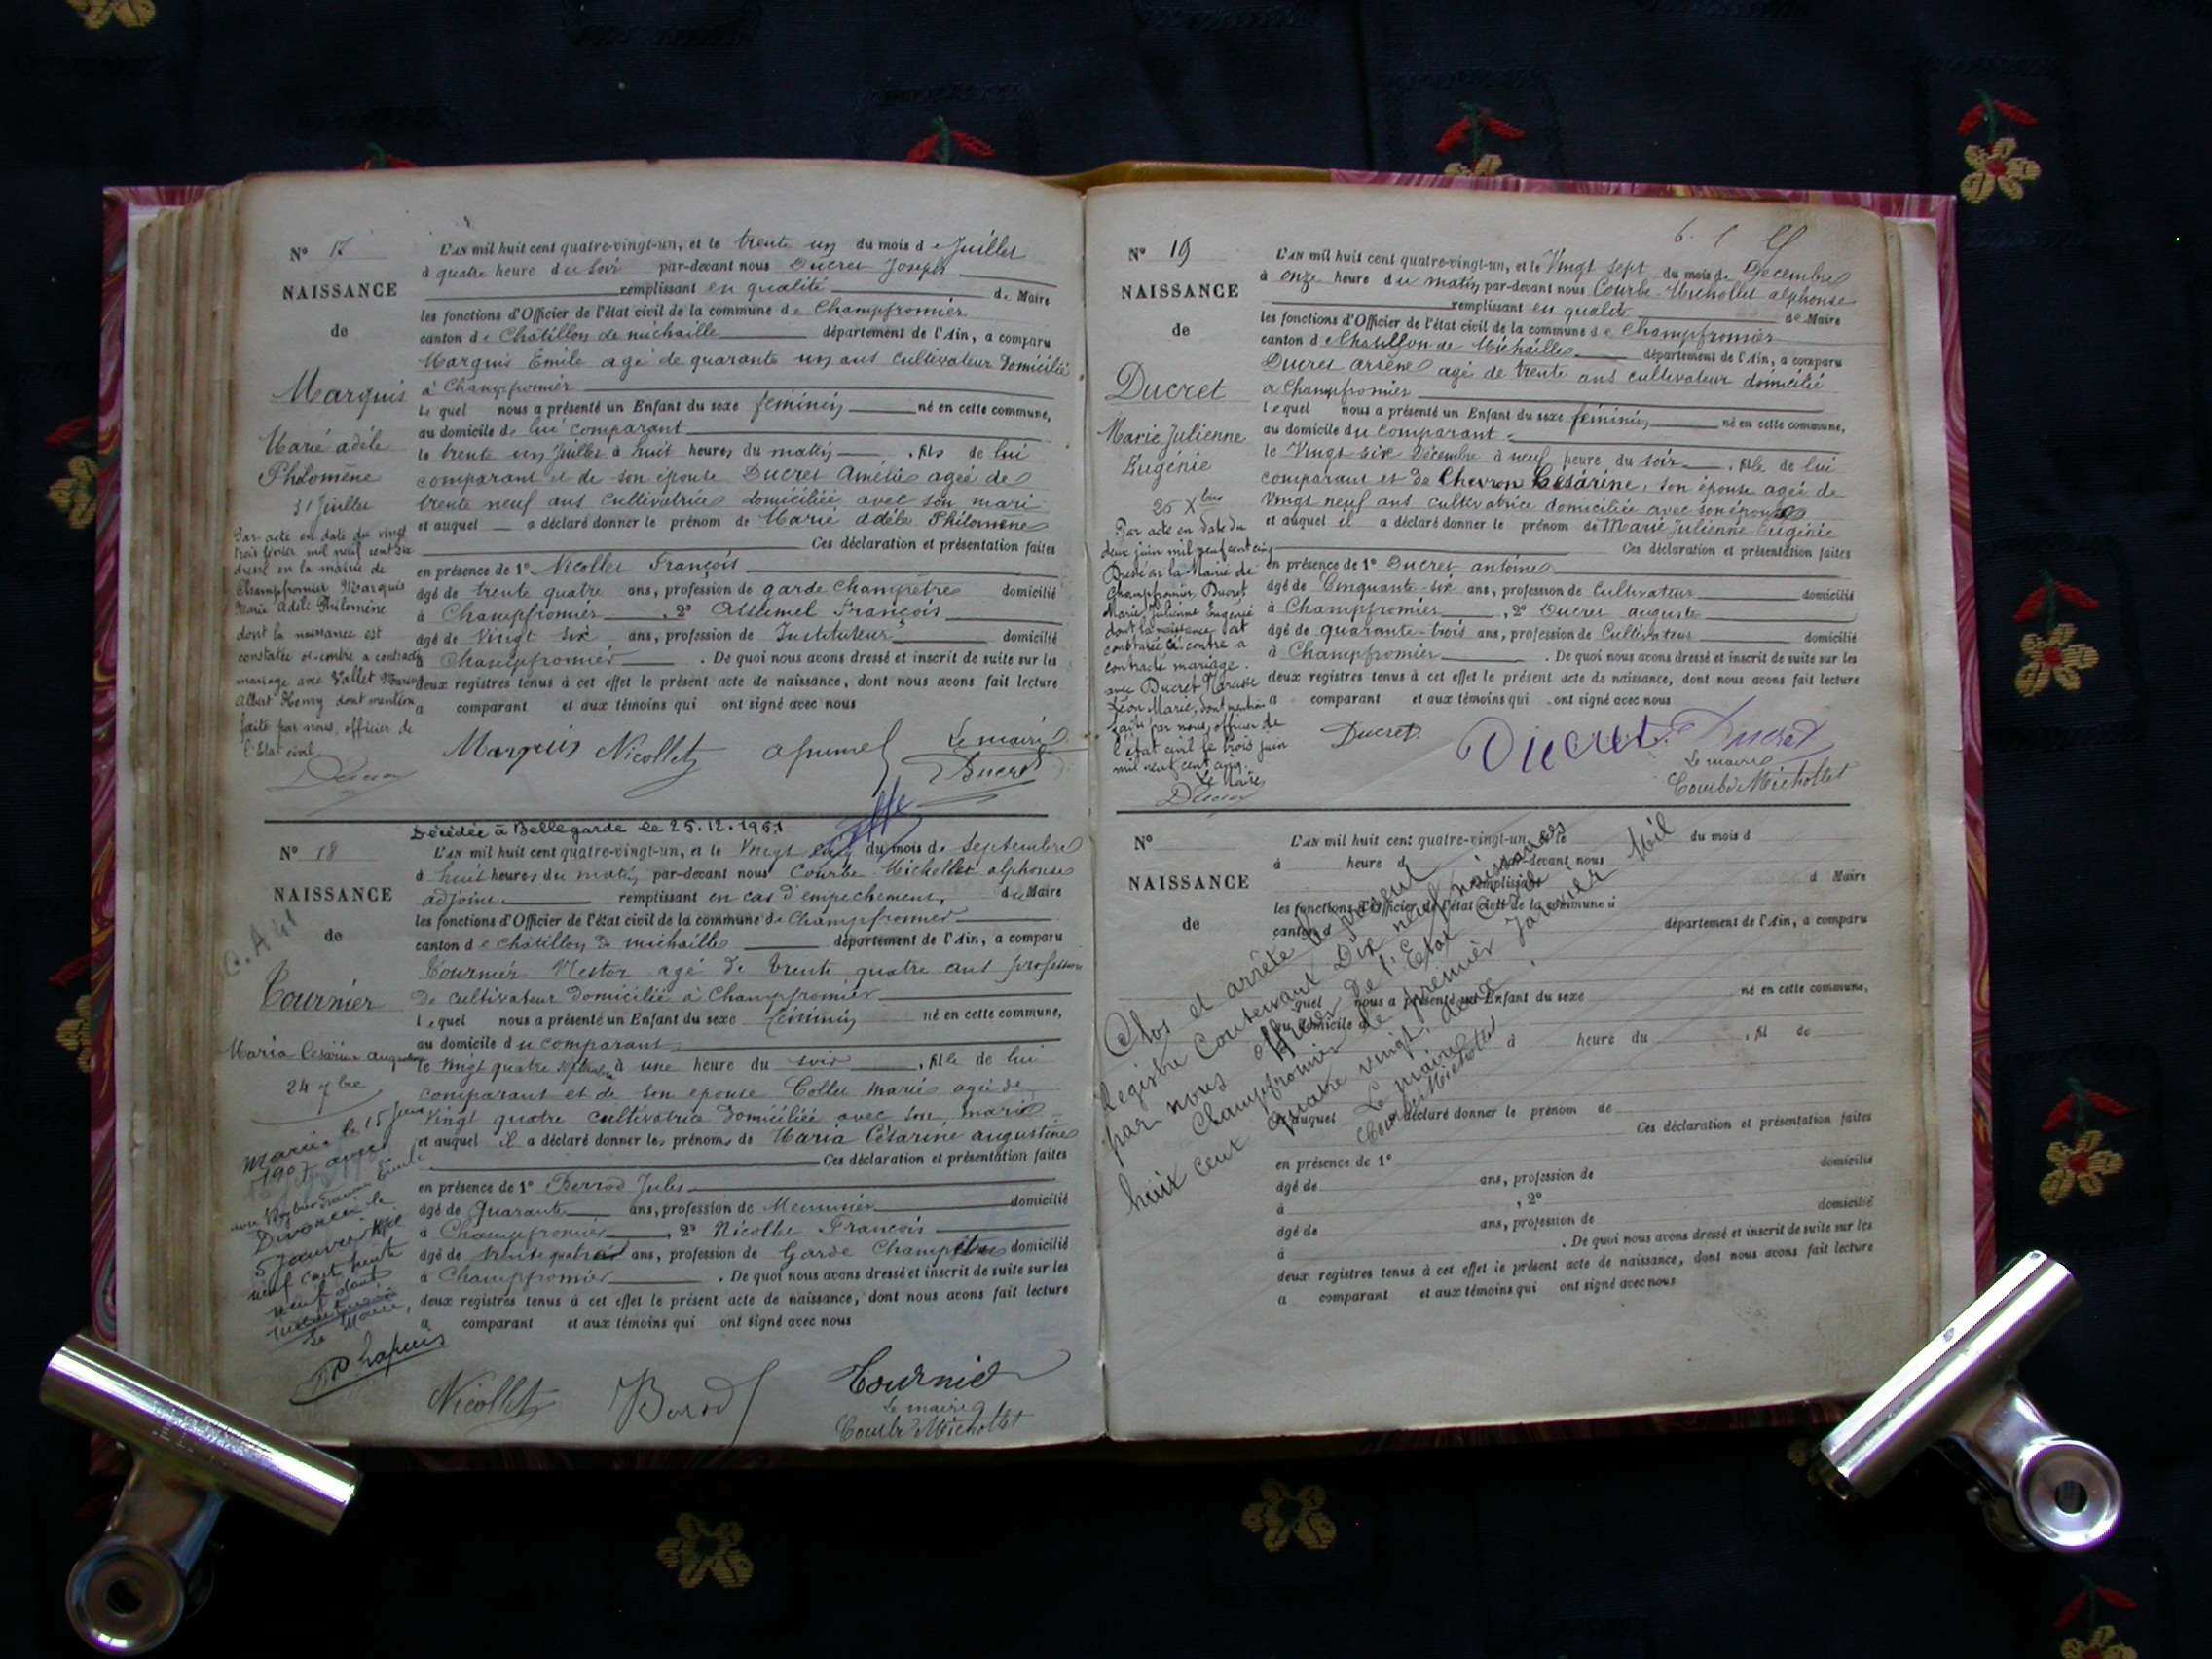 N° 17
NAISSANCE
de
Marquis
Marie adèle
Philomène
31 Juillet
Par acte en date du vingt
trois février mil neuf cent six
dressé en la mairie de
Champfromier Marquis
Marie Adèle Philomène
dont la naissance est
constatée ci-contre a contracté
mariage avec Vallet
Albert Henry dont mention
faite par nous, officier de
l'Etat civil
L'AN mil huit cent quatre-vingt-un, et le trente un du mois de Juillet
à quatre heure du soir par-devant nous Ducret Joseph
remplissant en qualité de Maire
les fonctions d'Officier de l'état civil de la commune de Champfromier
canton de Châtillon de michaille département de l'Ain, a comparu
Marquis Émile agé de quarante un ans cultivateur Domicilié
à Champfromier
le quel nous a présenté un Enfant du sexe feminin né en cette commune,
au domicile de lui comparant
le trente un Juillet à huit heures du matin, fils de lui
comparant et de son épouse Ducret Amélie agée de
trente neuf ans cultivatrice domiciliée avec son mari
et auquel a déclaré donner le prénom de Marie adèle Philomène
Ces déclaration et présentation faites
en présence de 1° Nicollet François
âgé de trente quatre ans, profession de garde Champêtre domicilié
à Champfromier, 2° François
âgé de Vingt six ans, profession de Instituteur domicilié
à Champfromier. De quoi nous avons dressé et inscrit de suite sur les
deux registres tenus à cet effet le présent acte de naissance, dont nous avons fait lecture
a comparant et aux témoins qui ont signé avec nous
Marquis Nicollet Le maire
Ducret
Décédée à Bellegarde le 25.12.1961
N° 18
NAISSANCE
de
Tournier
Maria Césarine augustine
24 7bre
Mariée le 15 Juin
1907 avec
Divorcée le
5 Janvier Mil
neuf cent trente
neuf
Le Maire,
L'AN mil huit cent quatre-vingt-un, et le Vingt cinq du mois de Septembre
à huit heures du matin par-devant nous Courbe-Michollet alphonse
adjoint remplissant en cas d'empechement, du Maire
les fonctions d'Officier de l'état civil de la commune de Champfromier
canton de Châtillon de michaille département de l'Ain, a comparu
Tournier Nestor agé de trente quatre ans profession
de cultivateur domicilié à Champfromier
lequel nous a présenté un Enfant du sexe féminin né en cette commune,
au domicile du comparant
le vingt quatre septembre à une heure du soir, fille de lui
comparant et de son epouse Collet marie agée de
Vingt quatre cultivatrice domiciliée avec son mari
et auquel il a déclaré donner les prénoms de Maria Césarine augustine
Ces déclaration et présentation faites
en présence de 1° Berrod Jules
âgé de Quarante ans, profession de Meunier domicilié
à Champfromier, 2° Nicollet François
âgé de trente quatre ans, profession de Garde Champêtre domicilié
à Champfromier. De quoi nous avons dressé et inscrit de suite sur les
deux registres tenus à cet effet le présent acte de naissance, dont nous avons fait lecture
a comparant et aux témoins qui ont signé avec nous
Nicollet Berrod Tournier
Le maire
Courbe Michollet
N° 19
NAISSANCE
de
Ducret
Marie Julienne
Eugénie
26 Xbre
Par acte en date du
deux juin mil neuf cent cinq
Dressé en la Mairie de
Champfromier, Ducret
Marie Julienne Eugénie
dont la naissance est
constatée ci-contre a
contracté mariage
avec Ducret Narcisse
Léon Marie, dont mention
faite par nous, officier de
l'état civil le trois juin
mil neuf cent cinq.
Le Maire
L'AN mil huit cent quatre-vingt-un, et le Vingt sept du mois de Décembre
à onze heure du matin par-devant nous Courbe-Michollet alphonse
remplissant en qualité de Maire
les fonctions d'Officier de l'état civil de la commune de Champfromier
canton de Chatillon de Michaille département de l'Ain, a comparu
Ducret arsène agé de trente ans cultivateur domicilié
a Champfromier
lequel nous a présenté un Enfant du sexe féminin né en cette commune,
au domicile du comparant
le Vingt six Décembre à neuf heure du soir, fille de lui
comparant et de Chevron Césarine, son épouse agée de
vingt neuf ans cultivatrice domiciliée avec son époux
et auquel il a déclaré donner le prénom de Marie Julienne Eugénie
Ces déclaration et présentation faites
en présence de 1° Ducret antoine
âgé de Cinquante-six ans, profession de Cultivateur domicilié
à Champfromier, 2° Ducret auguste
âgé de quarante-trois ans, profession de Cultivateur domicilié
à Champfromier. De quoi nous avons dressé et inscrit de suite sur les
deux registres tenus à cet effet le présent acte de naissance, dont nous avons fait lecture
a comparant et aux témoins qui ont signé avec nous
Ducret Ducret Ducret
Le maire
Courbe Michollet
N°
NAISSANCE
de
L'AN mil huit cent quatre-vingt-un, et le du mois d
à heure d par-devant nous
remplissant d Maire
les fonctions d'Officier de l'état civil de la commune d
canton d département de l'Ain, a comparu
quel nous a présenté un Enfant du sexe né en cette commune,
au domicile d
à heure du, fil de
auquel déclaré donner le prénom de
Ces déclaration et présentation faites
en présence de 1° domicilié
âgé de ans, profession de
à, 2° domicilié
âgé de ans, profession de
à. De quoi nous avons dressé et inscrit de suite sur les
deux registres tenus à cet effet le présent acte de naissance, dont nous avons fait lecture
a comparant et aux témoins qui ont signé avec nous
Clos et arrêté le présent
Registre Contenant Dix neuf naissances
par nous officier de l'Etat Civil de
Champfromier le premier Janvier Mil
huit cent quatre vingt deux.
Le maire
Courbe Michollet